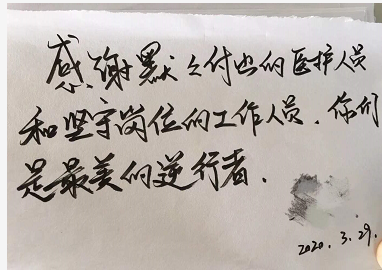 感谢默默付出的医护人员
和坚守岗位的工作人员.你们
是最美的逆行者.
2020.3.29.